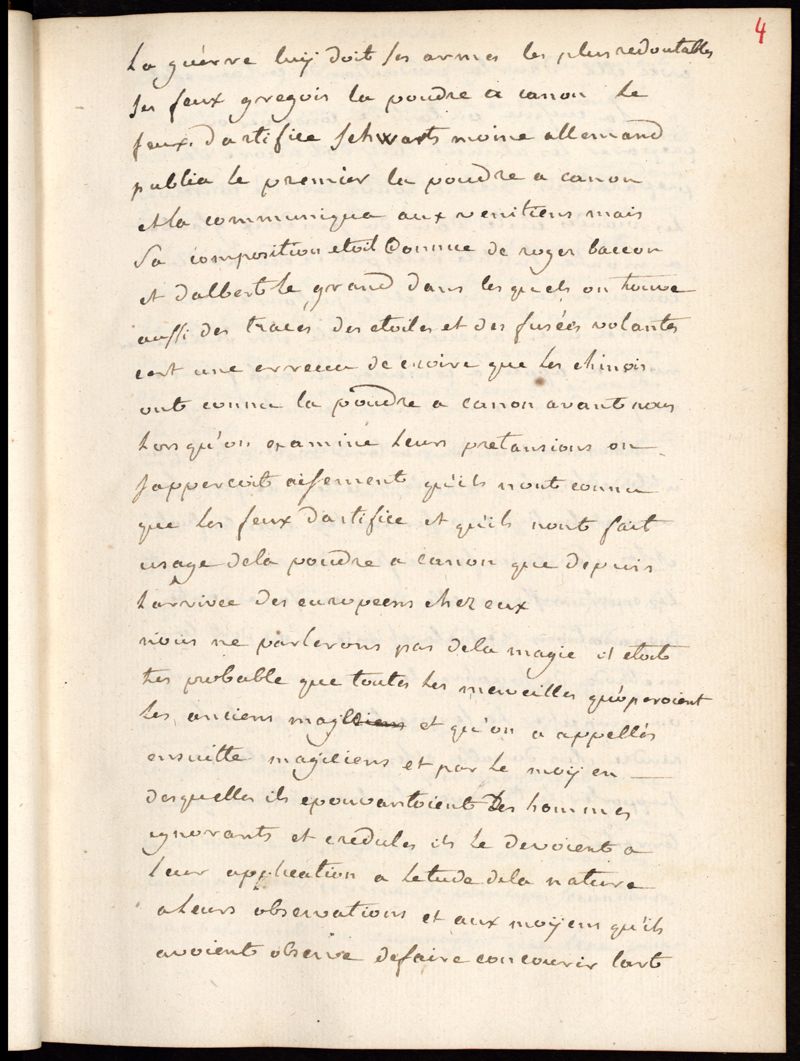 4
La guerre luy doit ses armes les plus redoutables
ses feux gregois la poudre a canon le
feux d'artifice Schwarts moine allemand
publia le premier la poudre a canon
et la communiqua aux venitiens mais
Sa composition etoit Connue de roger baccon
et dalbert le grand dans les quels on trouve
aussi des traces des etoiles et des fusées volantes
cest une erreur de croire que les chinois
ont connu la poudre a canon avant nous
Lorsqu'on examine Leurs pretansions on
sapperçoit aisement qu'ils nont connu
que les feux dartifice et qu'ils nont fait
usage dela poudre a canon que depuis
Larrivée des européens chez eux
nous ne parlerons pas dela magie il etoit
tres probable que toutes les merveilles qu'operoient
Les anciens mages et qu'on a appellés
ensuitte magiciens et par le moÿen
desquelles ils epouvantoient Des hommes
ignorants et credules ils le devoient a
leur application a letude dela nature
a Leurs observations et aux moÿens qu'ils
avoient observé defaire concourir lart